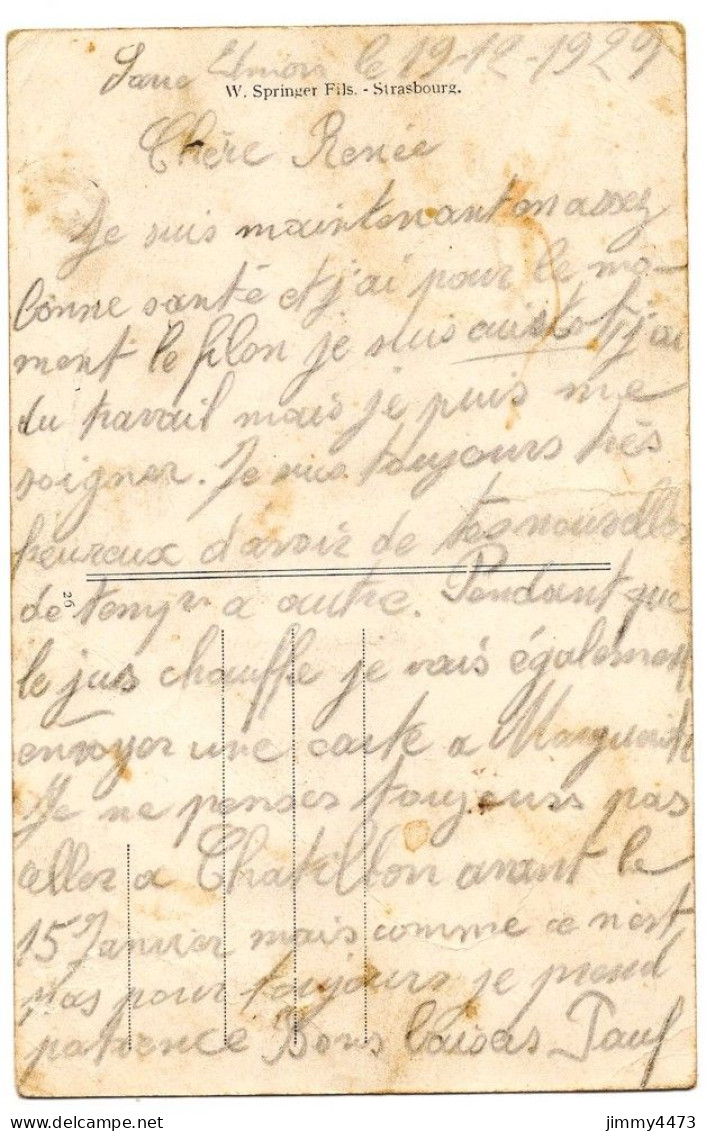 Sarre Union le 19-12-1929
W. Springer Fils. - Strasbourg.
Chère Renée
Je suis maintenant en assez
bonne santé et j'ai pour le mo-
ment le filon je suis cuistot j'ai
du travail mais je puis me
soigner. Je suis toujours très
heureux d'avoir de tes nouvelles
de temps a autre. Pendant que
26
le jus chauffe je vais également
envoyer une carte a Marguerite
Je ne penses toujours pas
aller a Chatillon avant le
15 Janvier mais comme ce n'est
pas pour toujours je prend
patience Bons baisers Paul
jimmy4473